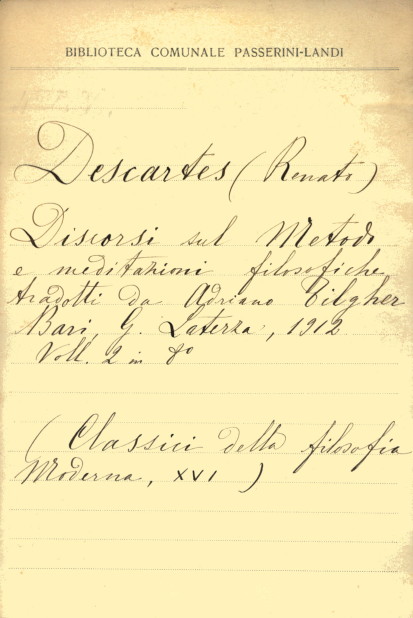 BIBLIOTECA COMUNALE PASSERINI-LANDI
Descartes (Renato)
Discorsi sul Metodo
e meditazioni filosofiche
tradotti da Adriano Tilgher
Bari, G. Laterza, 1912
Voll. 2 in 8º
(Classici della filosofia
Moderna, XVI)